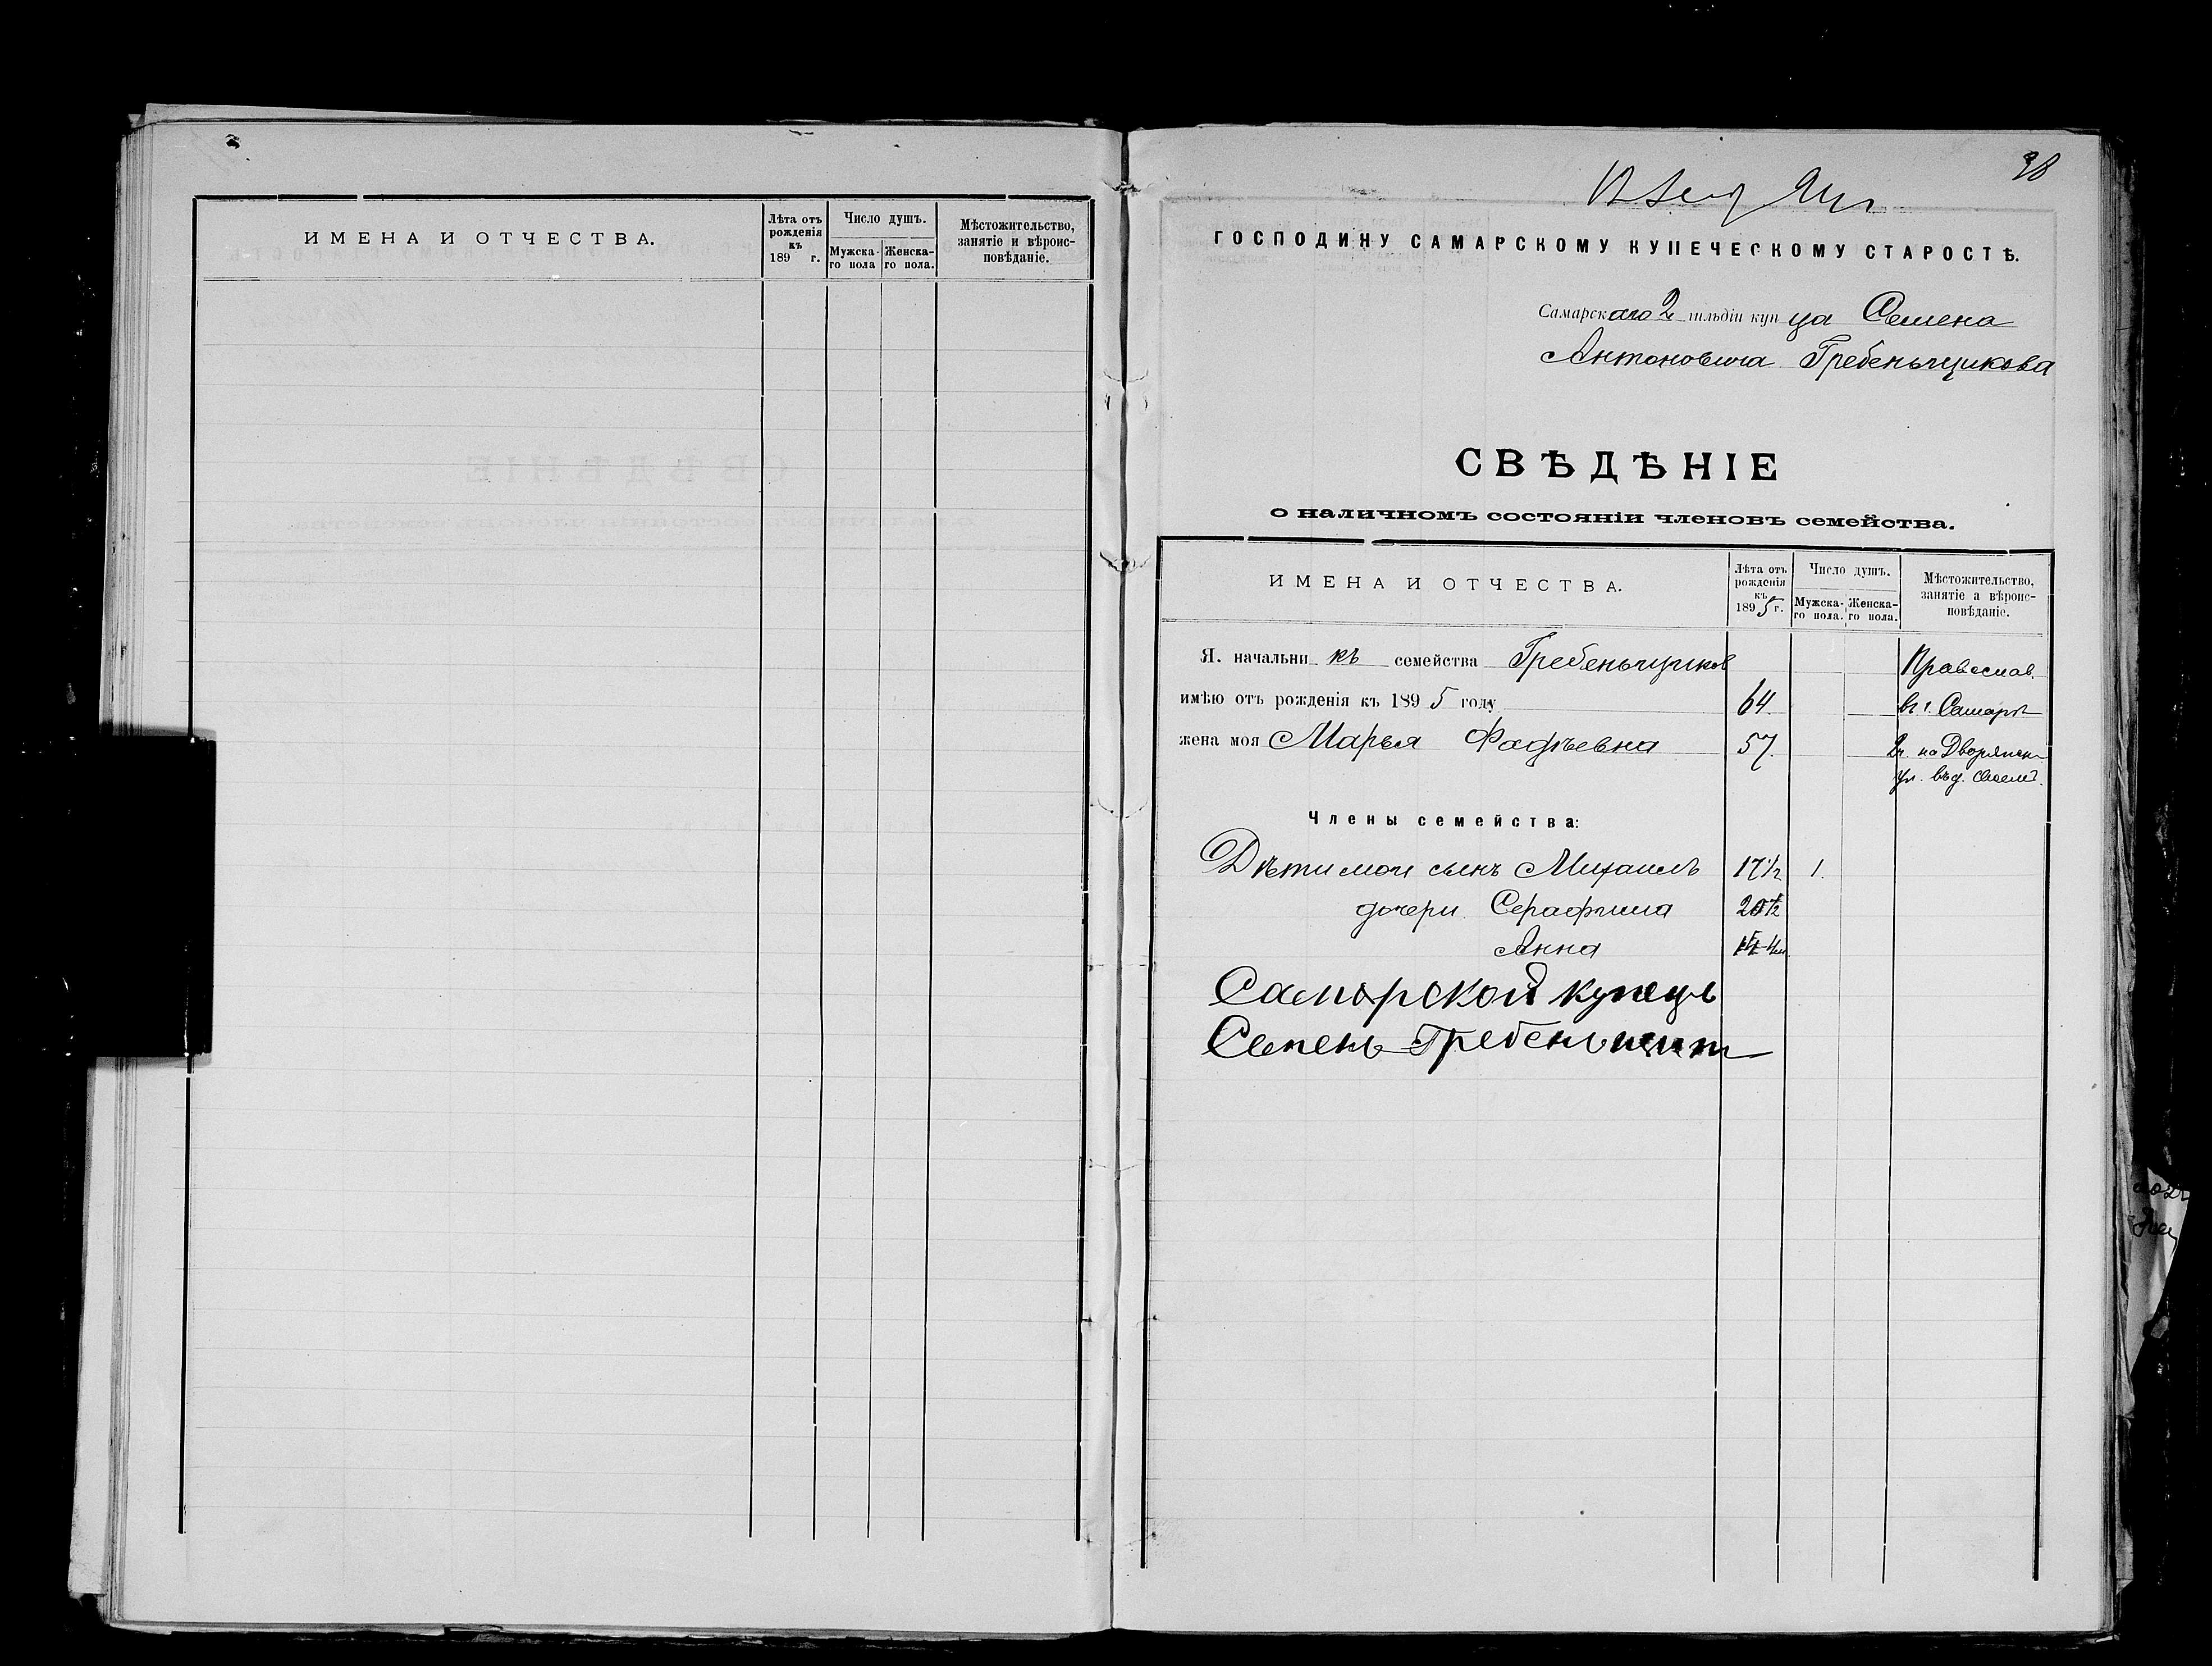 ИМЕНА И ОТЧЕСТВА.
Лѣта отъ рожденія къ 189 г.
Число душъ.
Мужска-го пола
Женска-го пола.
Мѣстожительство, занятіе и вѣроис-повѣданіе.
38
ГОСПОДИНУ САМАРСКОМУ КУПЕЧЕСКОМУ СТАРОСТѢ.
Самарскаго 2 гильдіи купца Семена
Антоновича Гребеньщикова
СВѢДѢНІЕ
о наличномъ состояніи членовъ семейства.
ИМЕНА И ОТЧЕСТВА.
Лѣта отъ рожденія къ 1895 г.
Число душъ.
Мужска-го пола.
Женска-го пола.
Мѣстожительство, занятіе а вѣроис-повѣданіе.
Я. начальникъ семейства Гребеньщиков Православ.
имѣю отъ рожденія къ 1895 году 64 въ г. Самарѣ
жена моя Марья Фадѣевна 57. 2ч. на Дворянск
ул. въ д. своемъ.
Члены семейства:
Дѣти мои сынъ Михаилъ 17½ 1.
дочери Серафима
Анна
Саморской купецъ
Семенъ